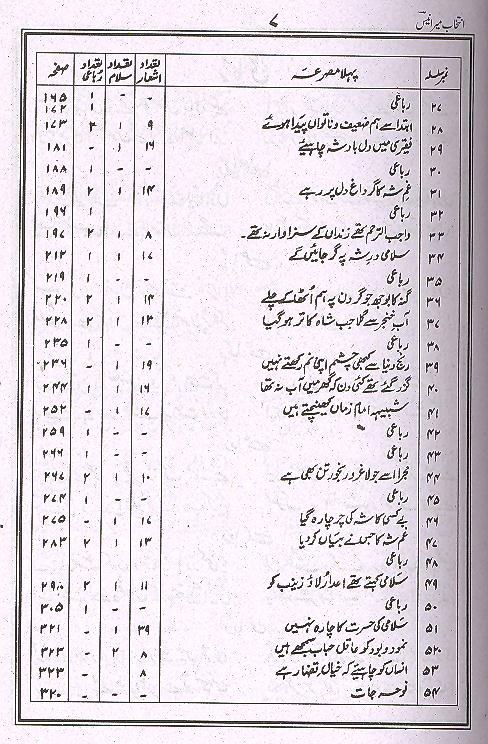 انتخاب میر انیس
۷
نمبر سلسلہ پہلا مصرعہ تعداد اشعار تعداد سلام تعداد رباعی صفحہ
۲۷ رباعی - - ۱ ۱۶۵
۱ ۱۷۲
۲۸ ابتدا سے ہم ضعیف و ناتواں پیدا ہوئے ۹ ۱ ۲ ۱۷۳
۲۹ فقیری میں دل بادشہ چاہیئے ۱۶ ۱ - ۱۸۱
۳۰ رباعی - - ۱ ۱۸۸
۳۱ غم شہ کا گر داغ دل پر رہے ۱۴ ۱ ۲ ۱۸۹
۳۲ رباعی - - ۱ ۱۹۶
۳۳ واجب الترحم تھے زنداں کے سزاوار نہ تھے۔ ۸ ۱ ۲ ۱۹۷
۳۴ سلامی در شہ پہ گر جائیں گے ۱۷ ۱ ۱ ۲۱۲
۳۵ رباعی - - ۱ ۲۱۹
۳۶ گنہ کا بوجھ جو گردن پہ ہم اٹھا کے چلے ۱۴ ۱ ۲ ۲۲۰
۳۷ آب خنجر سے گلا جب شاہ کا تر ہو گیا ۱۳ ۱ ۲ ۲۲۸
۳۸ رباعی - - ۱ ۲۳۵
۳۹ رنج دنیا سے کبھی چشم اپنی نم رکھتے نہیں ۱۹ ۱ - ۲۳۶
۴۰ گزر گئے تھے کئی دن کہ گھر میں آب نہ تھا ۱۶ ۱ ۱ ۲۴۴
۴۱ شبیہہ امام زماں کھینچتے ہیں ۱۷ ۱ - ۲۵۲
۴۲ رباعی - - ۱ ۲۵۹
۴۳ رباعی - - ۱ ۲۶۶
۴۴ مجرا اسے جو لاغر و رنجور تن بھی ہے ۱۰ ۱ ۲ ۲۶۷
۴۵ رباعی - - ۱ ۲۷۴
۴۶ بے کسی کا شہ کی چرچا رہ گیا ۱۷ ۱ - ۲۷۵
۴۷ غم شہ کا جس نے بیاں کر دیا ۱۳ ۱ ۲ ۲۸۳
۴۸ رباعی
۴۹ سلامی کہتے تھے اعدا رُلاؤ زینب کو ۱۱ ۱ ۲ ۲۹۰
۵۰ رباعی - - ۱ ۳۰۵
۵۱ سلامی کی حسرت کا چارہ نہیں ۳۹ ۱ - ۳۲۱
۵۲ نمود و بود کو عاقل حباب سمجھے ہیں ۸ ۲ - ۳۲۳
۵۳ انساں کو چاہیئے کہ خیال قضا رہے ۸ - - ۳۲۳
۵۴ نوحہ جات - - - ۳۲۰